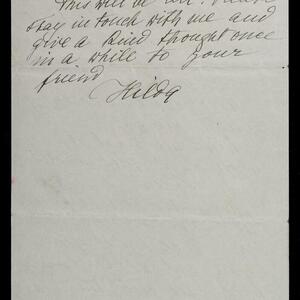 this will be all. Please
stay in touch with me and
give a kind thought once
in a while to your
friend
Hilda